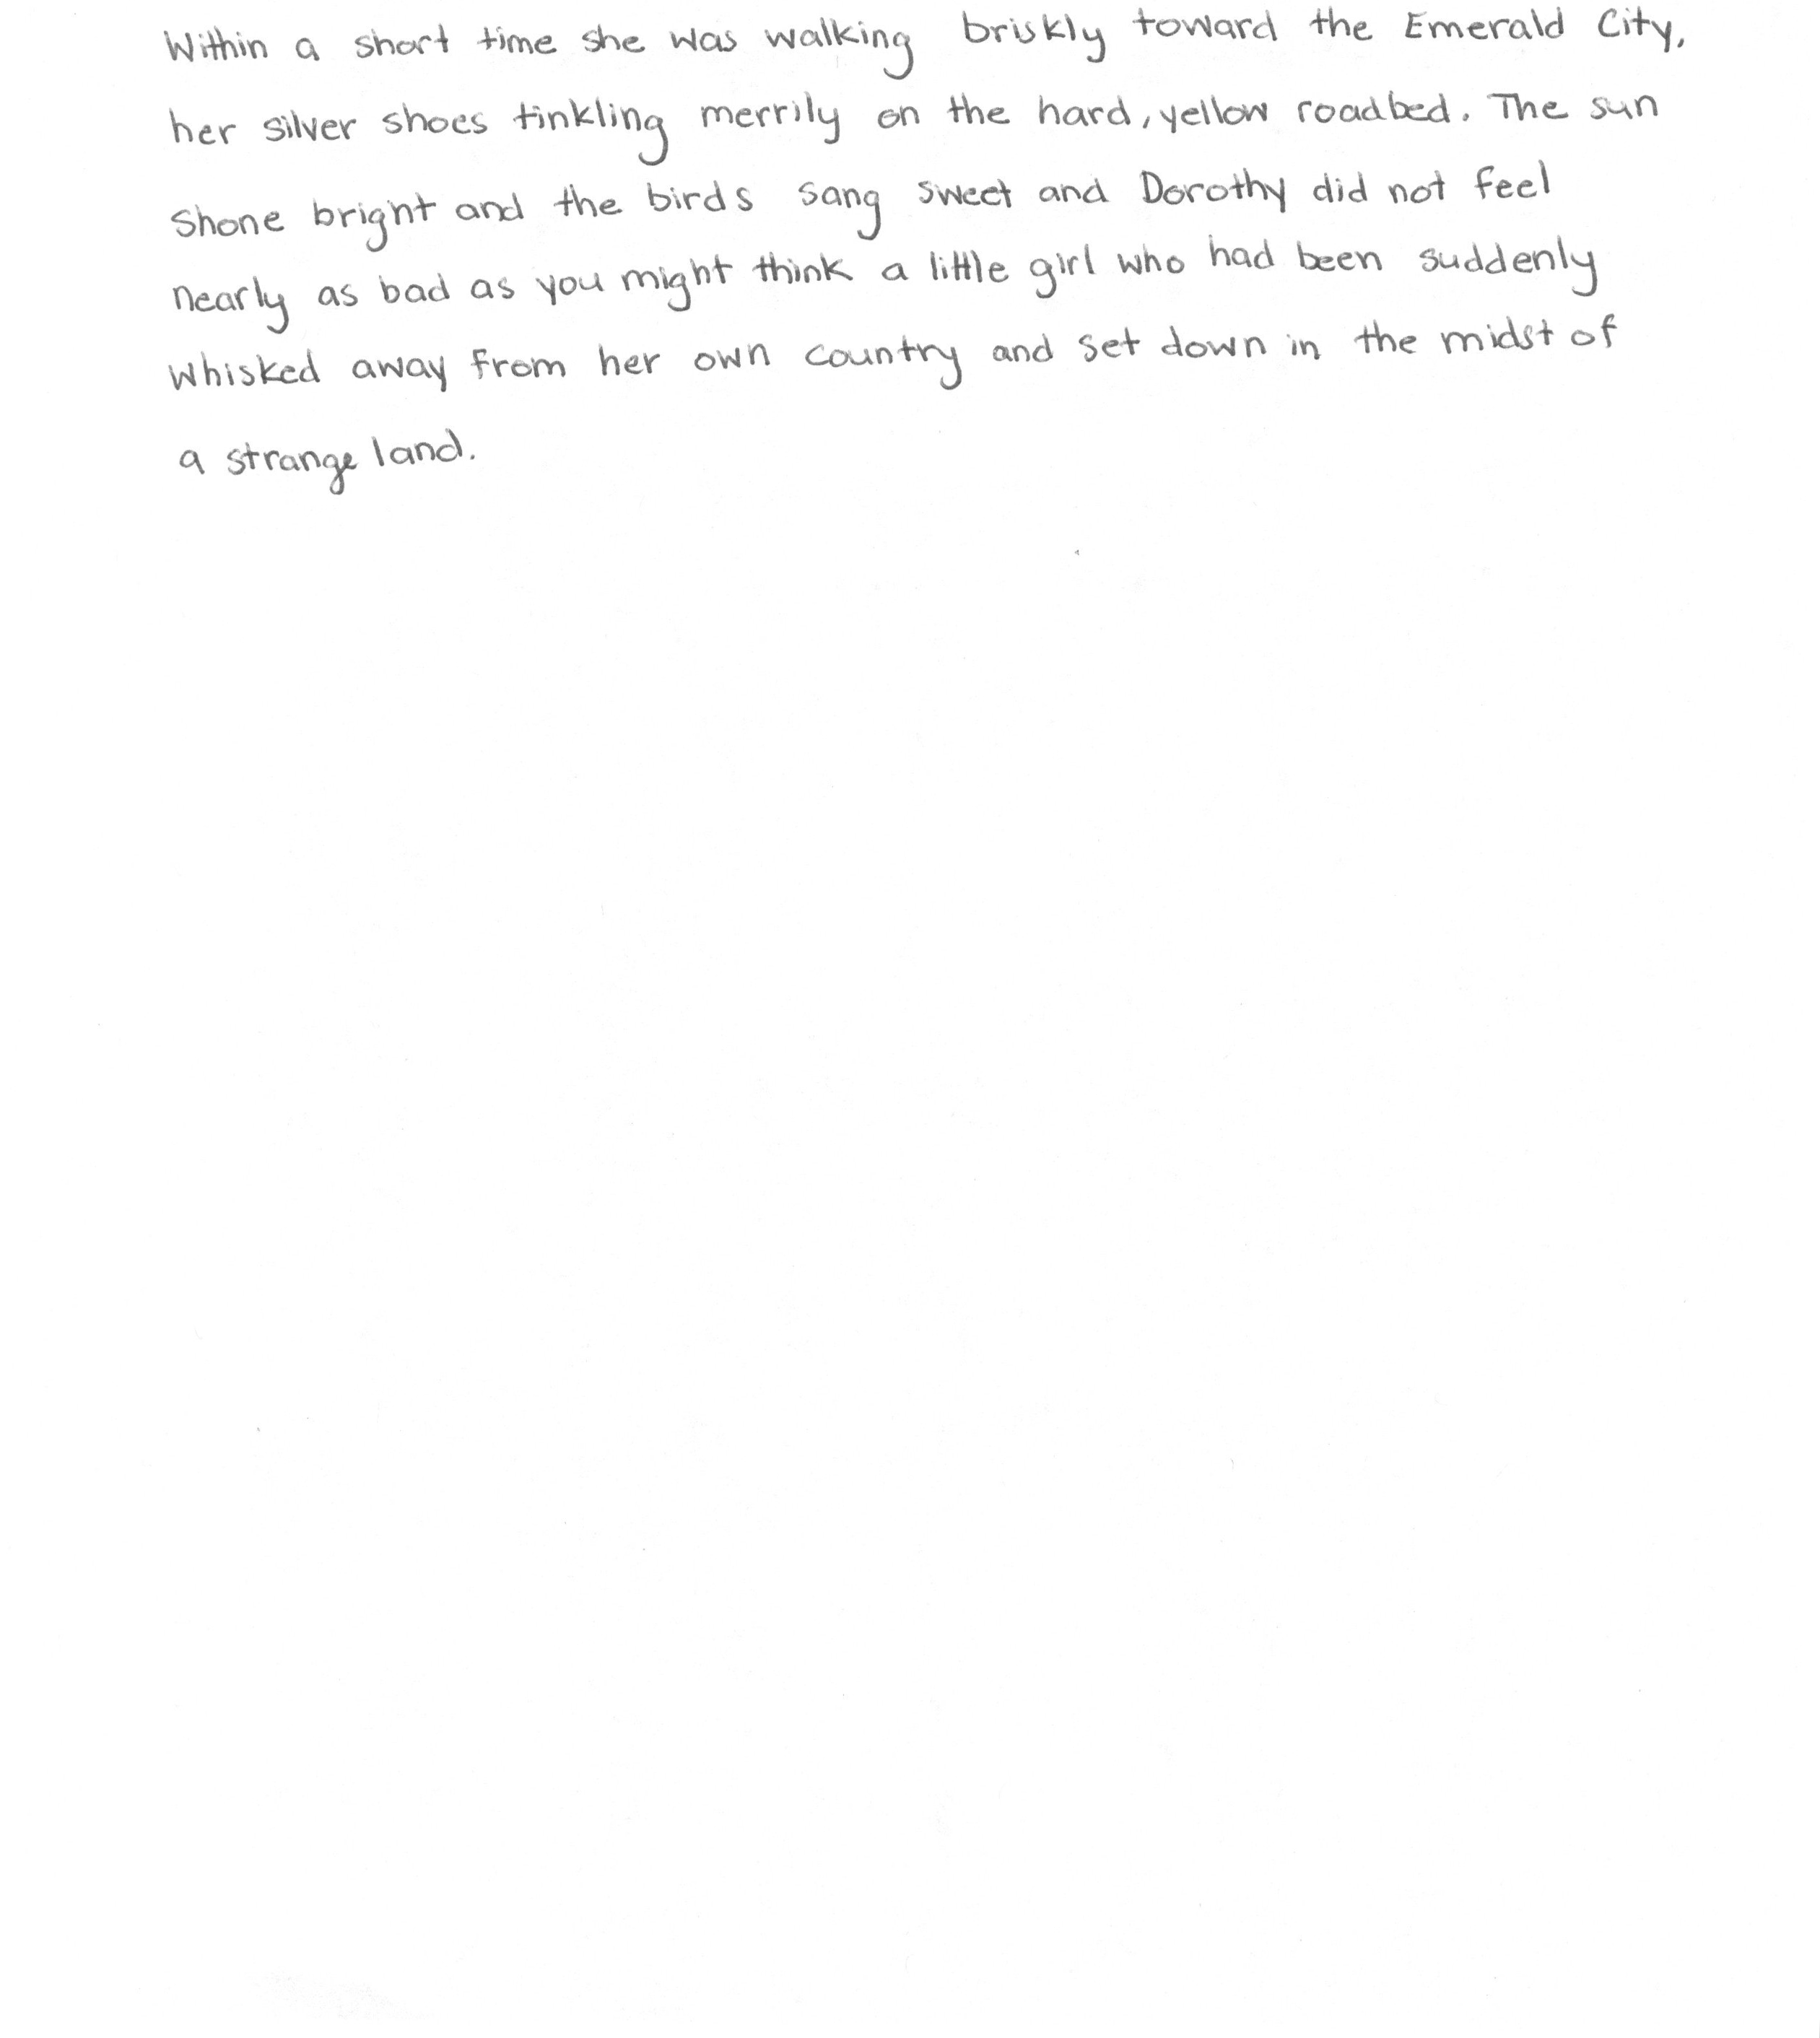 Within a short time she was walking briskly toward the Emerald City,
her silver shoes tinkling merrily on the hard, yellow roadbed. The sun
shone bright and the birds sang sweet and Dorothy did not feel
nearly as bad as you might think a little girl who had been suddenly
whisked away from her own country and set down in the midst of
a strange land.